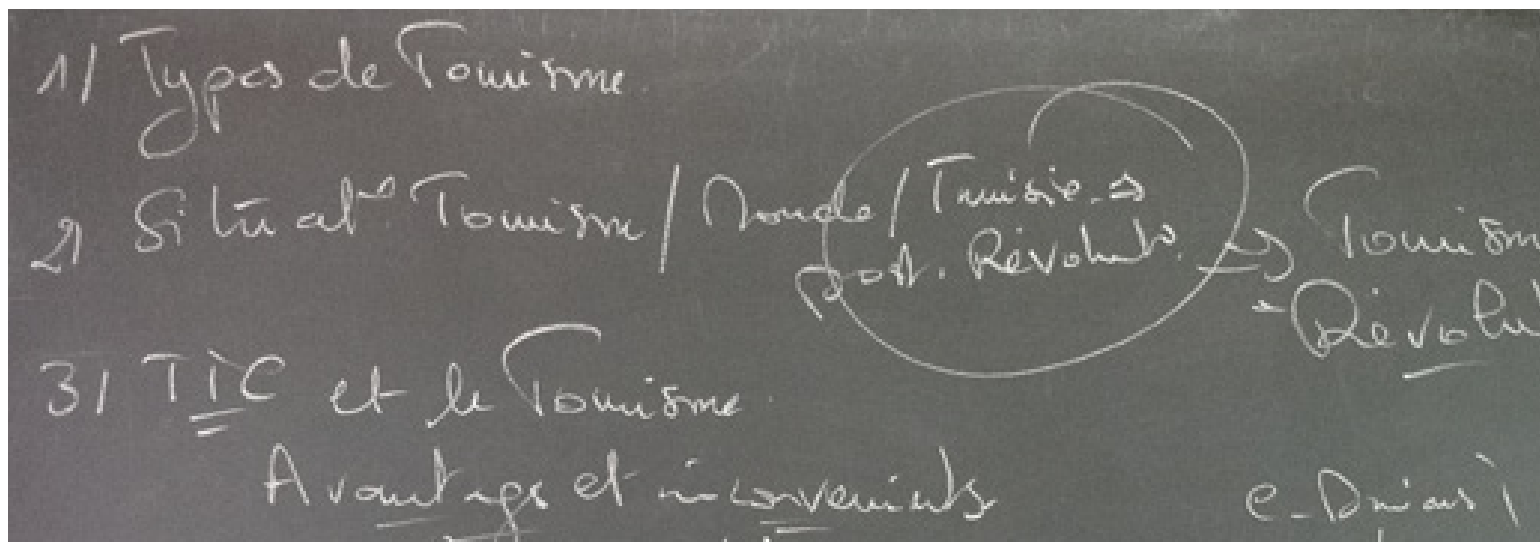 1/ Types de Tourisme.
2/ Situat° Tourisme / Monde / Tunisie →
post. Révolut°. → Tourism
- Révolu
3/ TIC et le Tourisme.
Avantages et inconvénients